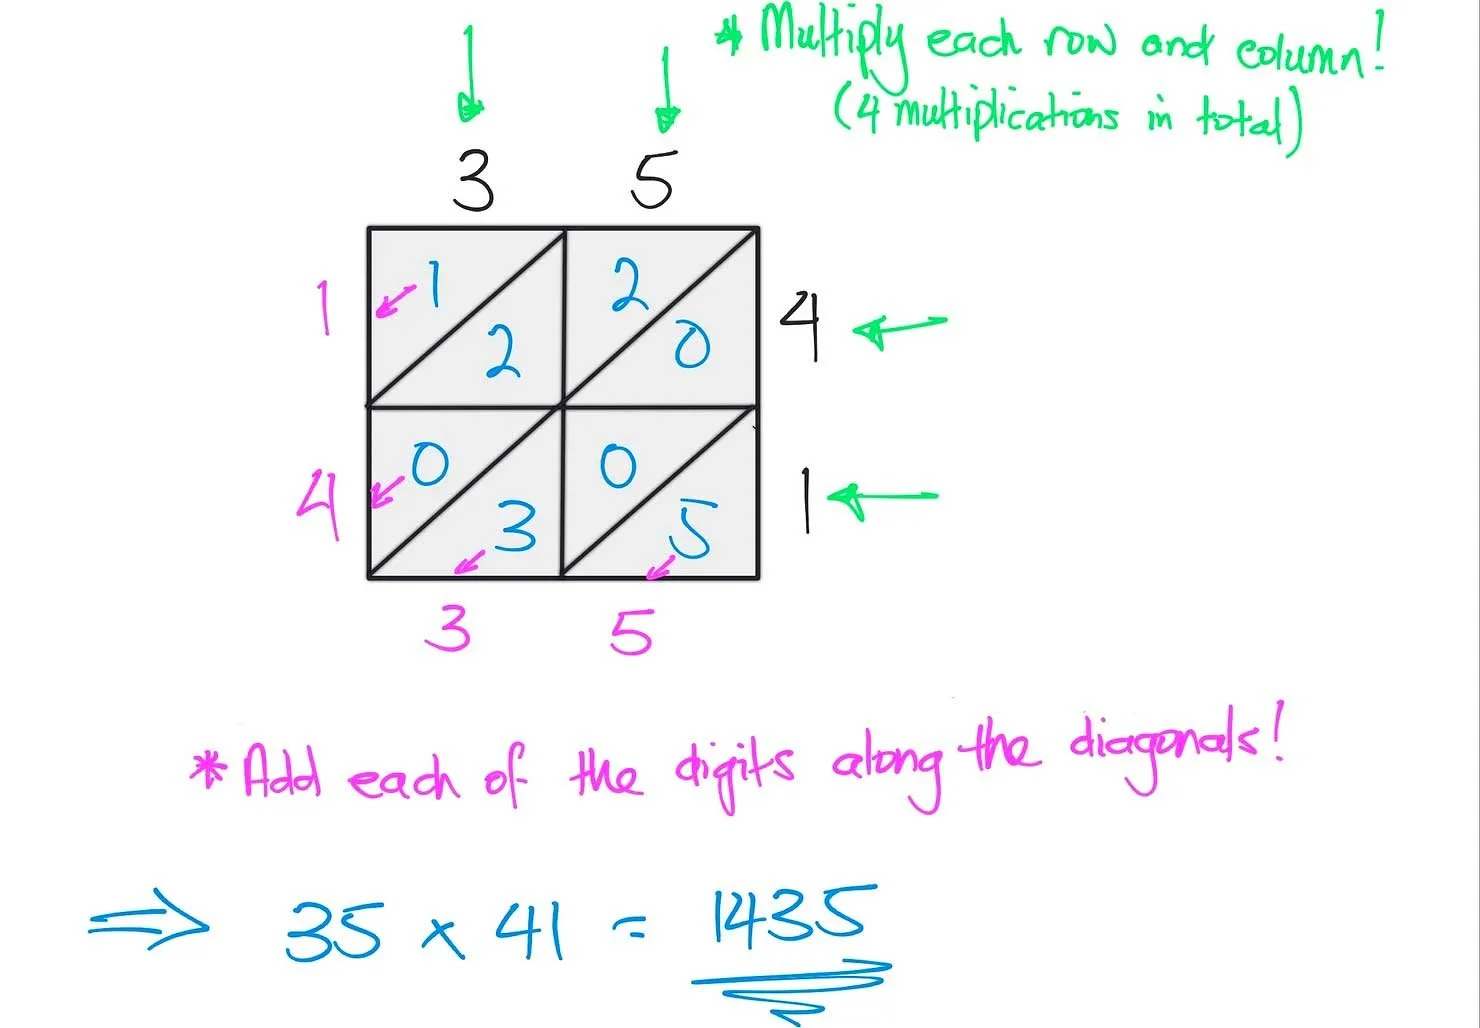 * Multiply each row and column!
(4 multiplications in total)
3 5
1 1 2 2 0 4
4 0 3 0 5 1
3 5
* Add each of the digits along the diagonals!
⇒ 35 × 41 = 1435